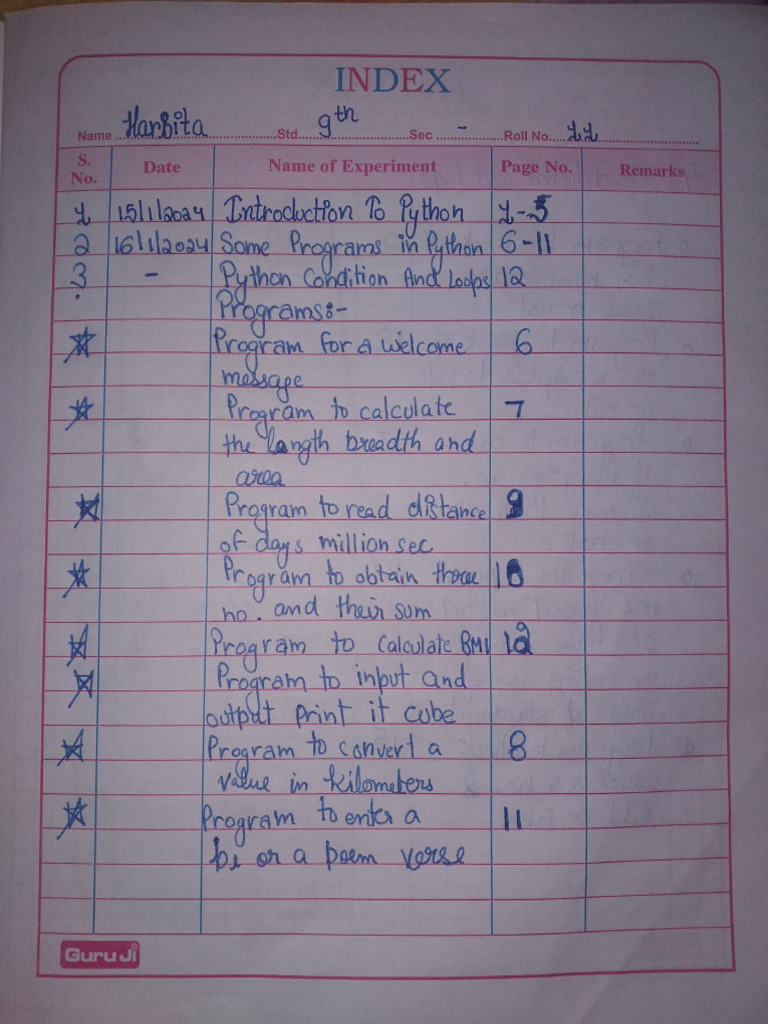 INDEX
Name Harsita Std. 9th Sec - Roll No. 11
S. No. Date Name of Experiment Page No. Remarks
1 15/1/2024 Introduction To Python 1-5
2 16/1/2024 Some Programs in Python 6-11
3. - Python Condition And Loops 12
Programs:-
Program for a welcome 6
message
Program to calculate 7
the length breadth and
area
Program to read distance 9
of days million sec
Program to obtain three 10
no. and their sum
Program to Calculate BMI
Program to input and
output print it cube
Program to convert a 8
value in kilometers
Program to enter a 11
or a poem verse
Guru Ji